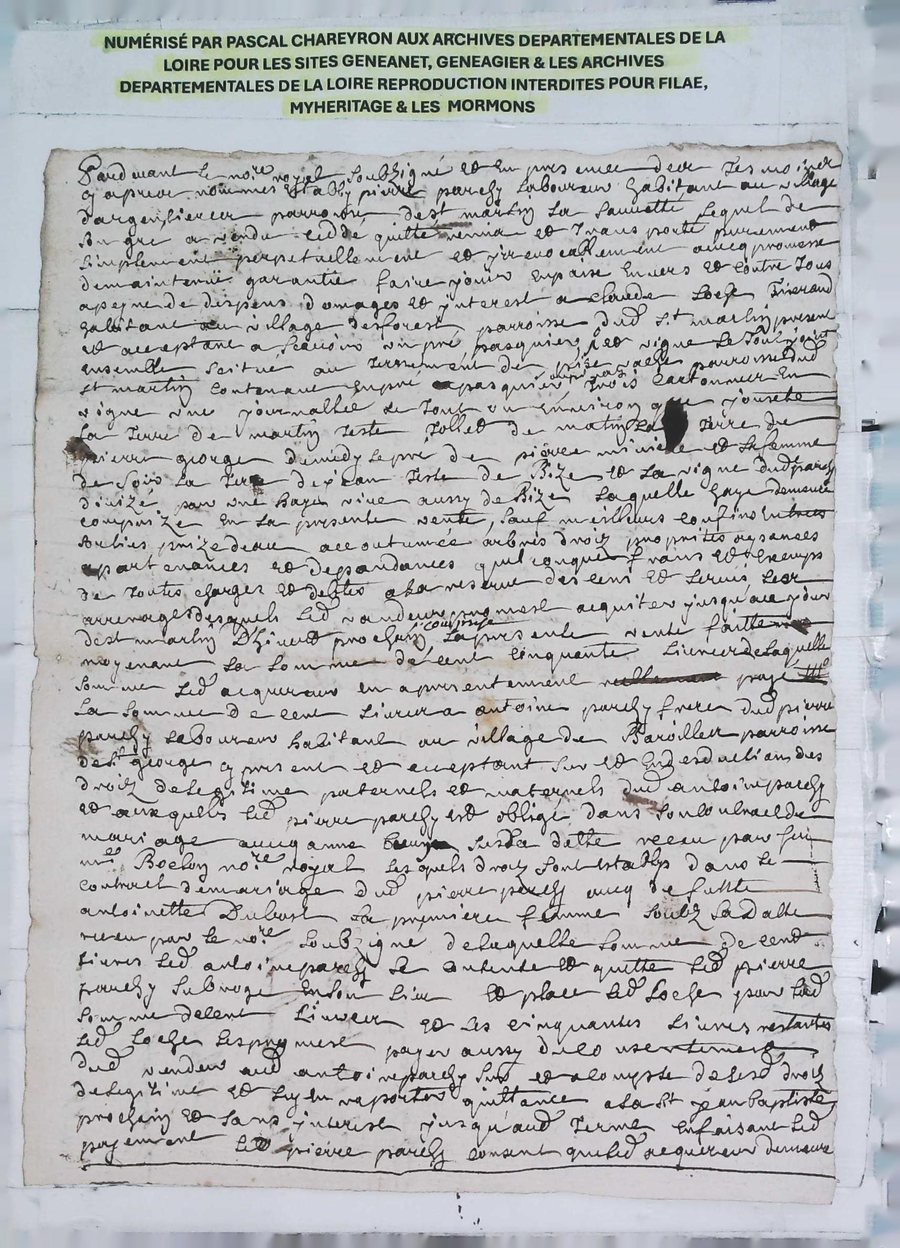 NUMÉRISÉ PAR PASCAL CHAREYRON AUX ARCHIVES DEPARTEMENTALES DE LA
LOIRE POUR LES SITES GENEANET, GENEAGIER & LES ARCHIVES
DEPARTEMENTALES DE LA LOIRE REPRODUCTION INTERDITES POUR FILAE,
MYHERITAGE & LES MORMONS
Pardevant le nore royal soubzigné et en presence des tesmoins
cy apres nommes estably pierre parchy laboureur habitant au village
d'argentieres parroisse de st martin la sauveté lequel de
son gré a vendu cedde quitte remis et transporté purement
simplement perpetuellement et irrevocablement avecq promesse
de maintenir garantir faire jouir en paix envers et contre tous
a peyne de despens domages et interest a claude loche tisserand
habitant au village desforest parroisse dud st martin present
et acceptant a scavoir un pré pasquier et vigne le tout joint
ensemble scitué au terrement de parroisse dud
st martin contenant en pré pasquier trois cartonnees en
vigne une journallee le tout ou environ que jouxte
la terre de martin teste de matin la terre de
pierre george de midy le pré de pierre et sa femme
de soir la terre de jean teste de bize et la vigne dud parchy
divizé par une haye vive aussy de bize laquelle haye demeure
comprize en la presente vente, sauf meilleurs confins entrees
sorties prize d'eau accoutumée arbres droiz proprietés aysances
apartenances et dependances quelconques francs et exempts
de toutes charges et debtes a la reserve des cens et servis les
arrerages desquels led vandeur promest acquiter jusqu'au jour
de st martin d'hiver prochain comprise la presente vente faitte
moyenant la somme de cent cinquante livres de laquelle
somme led acquereur en a presentement payé
la somme de cent livres a antoine parchy frere dud pierre
parchy laboureur habitant au village de Barollier parroisse
de st george cy present et acceptant sur et en desduction des
droiz de legitime paternels et maternels dud antoine parchy
et auxquels led pierre parchy est obligé dans son contract de
mariage avecq anne sus sa datte receu par feu
me Bochon nore royal lesquels droiz sont establys dans le
contract de mariage dud pierre parchy avecq deffunte
antoinette Dubost sa premiere femme soubz sa datte
receu par le nore soubzigné de laquelle somme de cent
livres led antoine parchy se contente et quitte led pierre
parchy subroge en son lieu et place led loche pour lad
somme de cent livres et les cinquantes livres restantes
led loche les promest payer aussy du consentement
dud vendeur aud antoine parchy sur et a compte de sesd droiz
de legitime et luy en raporter quittance a la st jean baptiste
prochain et sans interest jusqu'aud terme en faisant led
payement led pierre parchy consent que led acquereur demeure